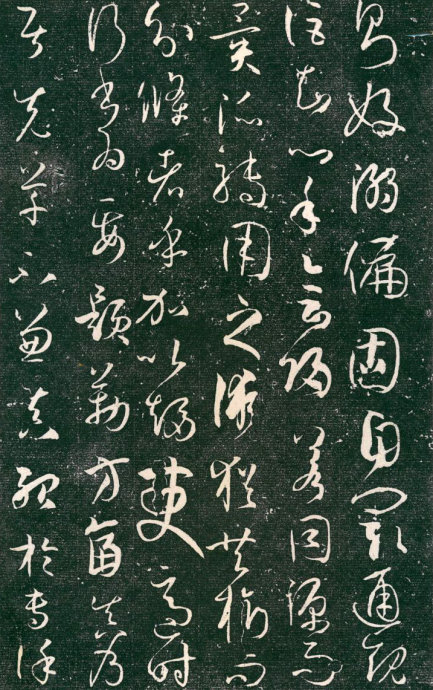 則好溺偏固自閡通規
詎知心手會歸若同源而
異派轉用之術猶共樹而
分條者乎加以趨變適時
行書為要題勒方畐真乃
居先草不兼真殆於專謹